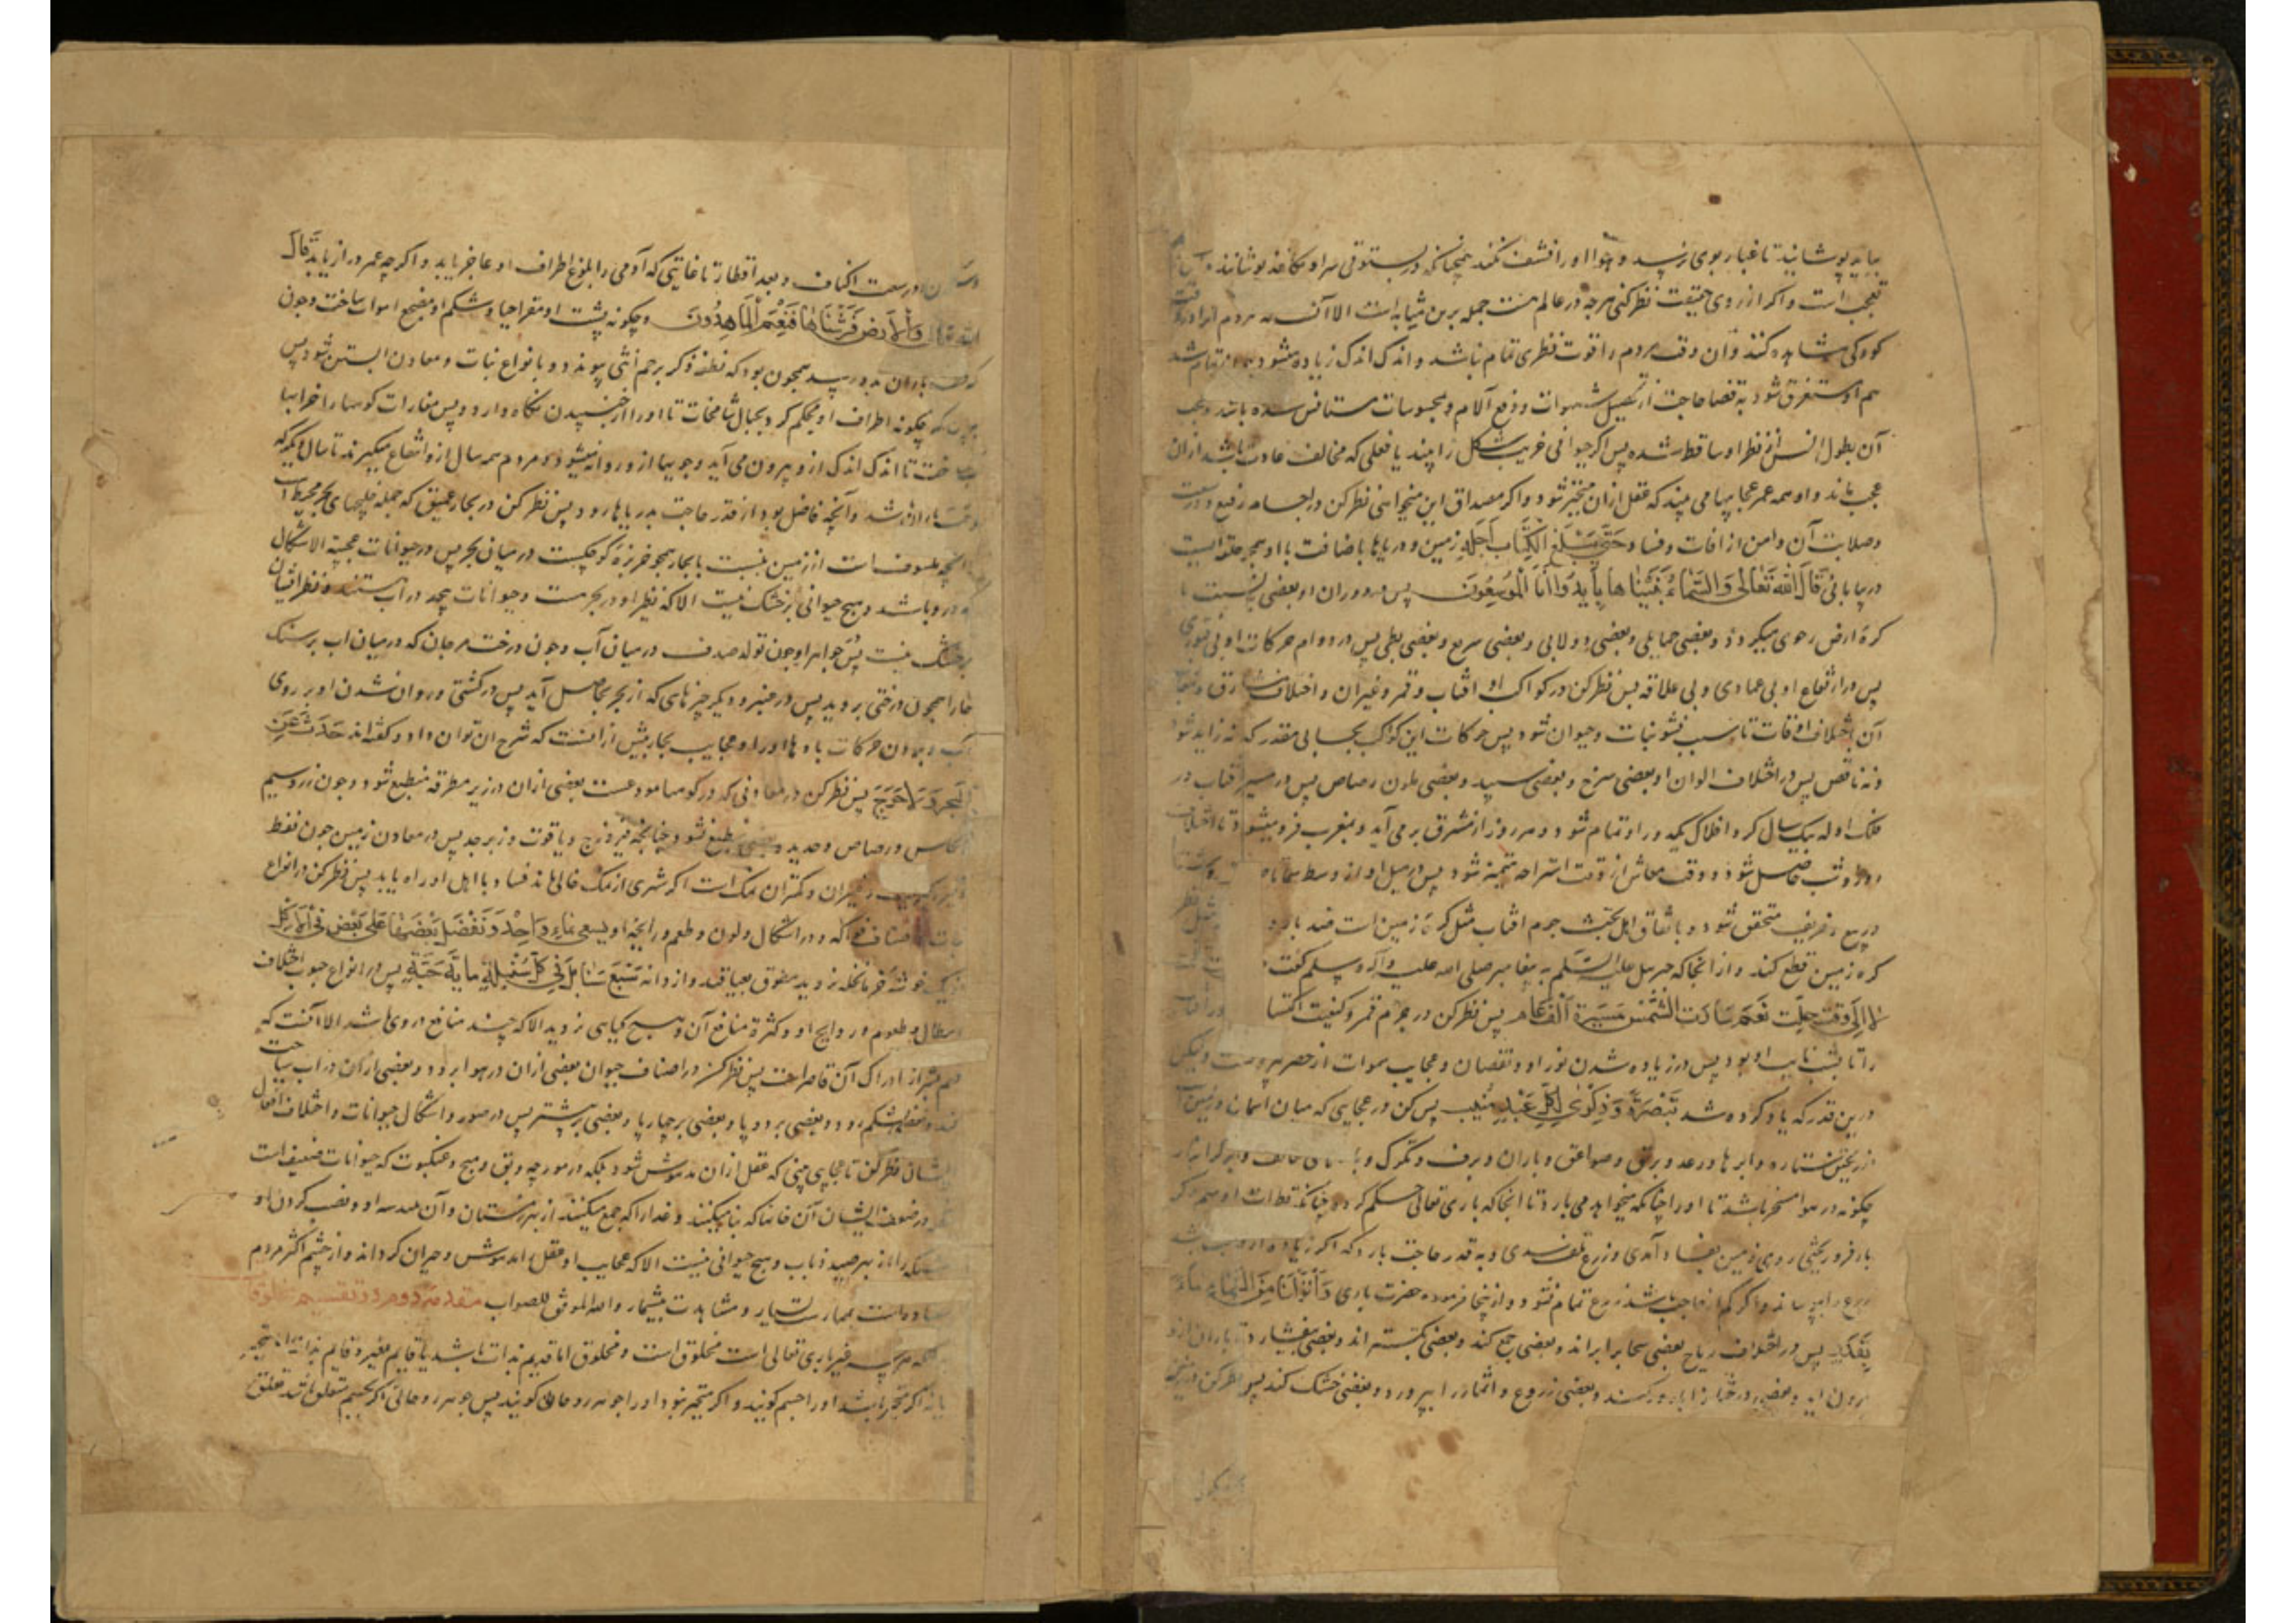 بباید پوشانید تا غبار بوی نرسد و هوا او را نشف نکند همچنانکه در بستوقی سر او بکاغذ پوشانند
تعجب است و اکر از روی حقیقت نظر کنی هرچه در عالم هست جمله برین مثابه است الا آنست که مردم آنرا در وقت
کودکی مشاهده کنند و آن وقت مردم را قوت نظری تمام نباشد و اندک اندک زیاده میشود
هم او مستغرق شود به قضا حاجت از تحصیل شهوات و دفع آلام و بمحسوسات مستانس شده باشد و تعجب
آن بطول انس از نظر او ساقط شده پس اکر حیوانی غریب شکل را بیند یا فعلی که مخالف عادت باشد ازان
عجب ماند و او همه عمر عجایبها می بیند که عقل ازان متحیر شود و اکر مصداق این میخواهی نظر کن در اجسام رفیع و وسعت
و صلابت آن و امن از افات و فساد حَتّی یَبْلُغَ الْکِتَابُ اَجَلَهُ زمین و دریاها باضافت با او همچو حلقه ایست
در بیابانی قَالَ اللهُ تَعَالٰی وَالسَّمَاءَ بَنَیْنَاهَا بِأَیْدٍ وَاِنَّا لَمُوسِعُونَ پس در دوران او بعضی نسبت با
کرۀ ارض رحوی میکردد و بعضی حمایلی و بعضی دولابی و بعضی سریع و بعضی بطی پس در دوام حرکات او بی فتوری
پس در ارتفاع او بی عمادی و بی علاقه پس نظر کن در کواکب او افتاب و قمر و غیران و اختلاف مشارق و مغارب
آن باختلاف اوقات تا سبب نشو نبات و حیوان شود پس حرکات این کواکب بحسابی مقدر که نه زاید شود
و نه ناقص پس در اختلاف الوان او بعضی سرخ و بعضی سپید و بعضی بلون رصاص پس در مسیر افتاب در
فلک او که بیک سال کرد افلاک بکیرد او تمام شود و هر روز از مشرق برمی آید و بمغرب فرو میشود تا اختلاف
روز و شب حاصل شود و وقت معاش از وقت استراحه متمیز شود پس در میل او از وسط سما تا
و ربیع و خریف متحقق شود و باتفاق اهل بحث جرم افتاب مثل کرۀ زمین است صد بار
کره زمین قطع کند و از انجا که جبرئیل علیه السّلم به پیغامبر صلی الله علیه وآله وسلم کفت
لا اِلٰی وَقت قُلْتَ نَعَم سَارَتِ الشَّمْسُ مَسِیرَةَ اَلْفِ عَامٍ پس نظر کن در جرم قمر و کیفیت اکتسا
را تا بشب نایب او بود پس در زیاده شدن نور او و نقصان و عجایب سموات از حصر بیرونست ولیکن
درین قدر که یاد کرده شد تَبْصِرَةً وَ ذِکْرٰی لِکُلِّ عَبْدٍ مُنِیبٍ پس کن در عجایبی که میان آسمان و زمین است
از ریختن ستاره و ابرها و رعد و برق و صواعق و باران و برف و تکرک و
چکونه در هوا مسخر باشد تا او را چنانکه میخواهد می بارد تا انجا که باری تعالی حکم کرده چنانکه قطرات
بار فرو ریختی روی زمین بفساد آمدی و زرع تلف شدی و بقدر حاجت بارد که اکر زیاده از
زرع را بپوساند و اکر کم از حاجت باشد زرع تمام نشود و ازینجا فرموده حضرت باری وَاَنْزَلْنَا مِنَ السَّمَاءِ مَاءً
بِقَدَرٍ پس در اختلاف ریاح بعضی سحابرا براند و بعضی جمع کند و بعضی بکستراند و بعضی بیفشارد تا باران ازو
برون اید و بعضی درختانرا بارور کند و بعضی زروع و اثمار را بپرورد و بعضی خشک کند پس نظر کن در زمین
در وسعت اکناف و بعد اقطار تا غایتی که آدمی را بلوغ اطراف او عاجز یابد و اکرچه عمر دراز یابد قَالَ
الله تعالی وَالْاَرْضَ فَرَشْنَاهَا فَنِعْمَ الْمَاهِدُونَ و چکونه پشت او مقر احیا و شکم او مضجع اموات ساخت و چون
باران بدو رسد همچون بود که نطفه ذکر برحم انثی پیوندد و بانواع نبات و معادن ابستن شود پس
چکونه اطراف او محکم کرد بجبال شامخات تا او را از جنبیدن نکاه دارد و پس مغارات کوهها را خزاین
ساخت تا اندک اندک ازو بیرون می آید و جویها ازو روانه میشود و مردم همه سال ازو انتفاع میکیرند تا سال دیکر که
وقت باران باشد و آنچه فاضل بود از قدر حاجت بدریاها رود پس نظر کن در بحار عمیق که جمله خلیجهای بحر محیط است
انچه مکشوف است از زمین بنسبت با بحار همچو خربزۀ کوچکست در میان بحر پس در حیوانات عجیبة الاشکال
که درو باشد و هیچ حیوانی بر خشک نیست الا که نظیر او در بحر هست و حیوانات بیحد در آب هستند و نظیر ایشان
بر خشک نیست پس جواهر او چون تولد صدف در میان آب و چون درخت مرجان که در میان اب بر سنک
خارا همچون درختی بروید پس در عنبر و دیکر چیزهای که از بحر بحاصل آید پس در کشتی و روان شدن او بر روی
آب و بودن حرکات باد ها او را و عجایب بحار بیش از انست که شرح ان توان داد و کفته اند حَدِّثْ عَنِ
الْبَحْرِ وَلَا حَرَجَ پس نظر کن در معادنی که در کوهها مودعست بعضی ازان در زیر مطرقه منطبع شود چون زر و سیم
و نحاس و رصاص و حدید و بعضی منطبع نشود چنانچه فیروزج و یاقوت و زبرجد پس در معادن زمین چون نفط
و کبریت و غیران و کمتران نمک است اکر شهری از نمک خالی ماند فساد باهل او راه یابد پس نظر کن در انواع
نبات و اصناف فواکه و در اشکال و لون و طعم و رایحه او یسقی بماءٍ وَاحِدٍ وَنُفَضِّلُ بَعْضَهَا عَلٰی بَعْضٍ فِی الْاُکُلِ
سَبْعَ سَنَابِلَ فِی کُلِّ سُنْبُلَةٍ مِایَةُ حَبَّةٍ پس در انواع حبوب و اختلاف
اشکال و طعوم و روایح او و کثرة منافع آن و هیچ کیاهی نروید الا که چند منافع در وی باشد الا آنست که
فهم بشر از ادراک آن قاصر است پس نظر کن در اصناف حیوان بعضی ازان در هوا برود و بعضی ازان در اب سباحت
کند و بعضی بشکم رود و بعضی بر دو پا و بعضی بر چهار پا و بعضی بر بیشتر پس در صور و اشکال حیوانات و اختلاف افعال
ایشان نظر کن تا عجایبی بینی که عقل ازان مدهوش شود بلکه در مورچه و بق و مبج و عنکبوت که حیوانات ضعیف است
نظر در ضعف ایشان آن خانها که بنا میکنند و غذا را که جمع میکنند از بهر زمستان و آن هندسه او و نصب کردن او
شبکه را از بهر صید ذباب و هیچ حیوانی نیست الا که عجایب او عقل را مدهوش و حیران کرداند و از چشم اکثر مردم
افتاده است بممارست بسیار و مشاهدت بیشمار والله الموفق للصواب مقدمه دوم در تقسیم مخلوقات
هرچه غیر باری تعالی است مخلوق است و مخلوق اما قدیم بذات باشد یا قایم بغیر و قایم بذات یا متحیز
یا نه اکر متحیز باشد او را جسم کویند و اکر متحیز نبود او را جوهر روحانی کویند پس جوهر روحانی اکر بجسم متعلق باشد تعلق